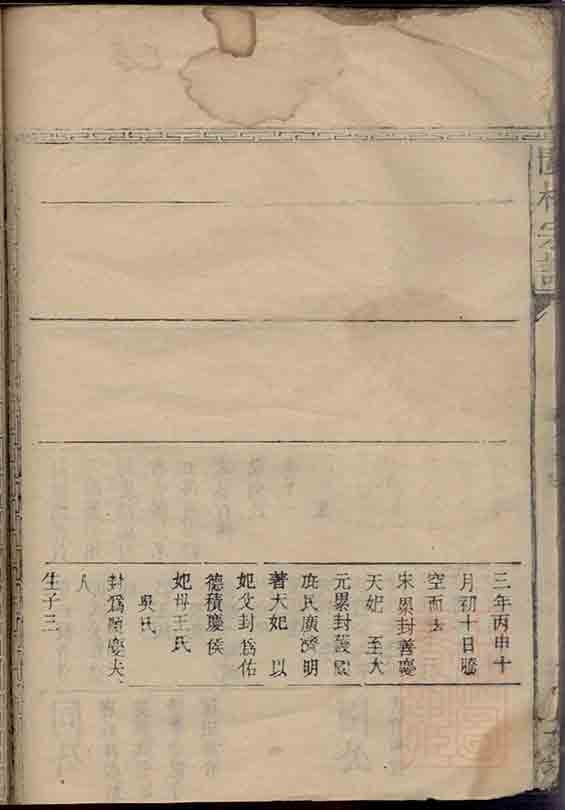 三年丙申十
月初十日騰
空而去
宋累封善慶
天妃　至大
元累封護國
庇民廣濟明
著大妃　以
妃父封爲佑
德積慶侯
妃母王氏
吳氏
封爲顯慶夫
人
生子三